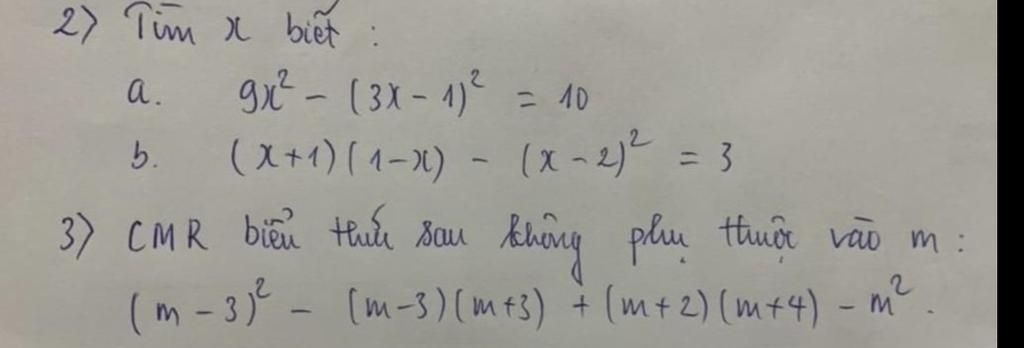 2) Tìm x biết :
a. 9x² - (3x - 1)² = 10
b. (x+1)(1-x) - (x-2)² = 3
3) CMR biểu thức sau không phụ thuộc vào m :
(m-3)² - (m-3)(m+3) + (m+2)(m+4) - m².